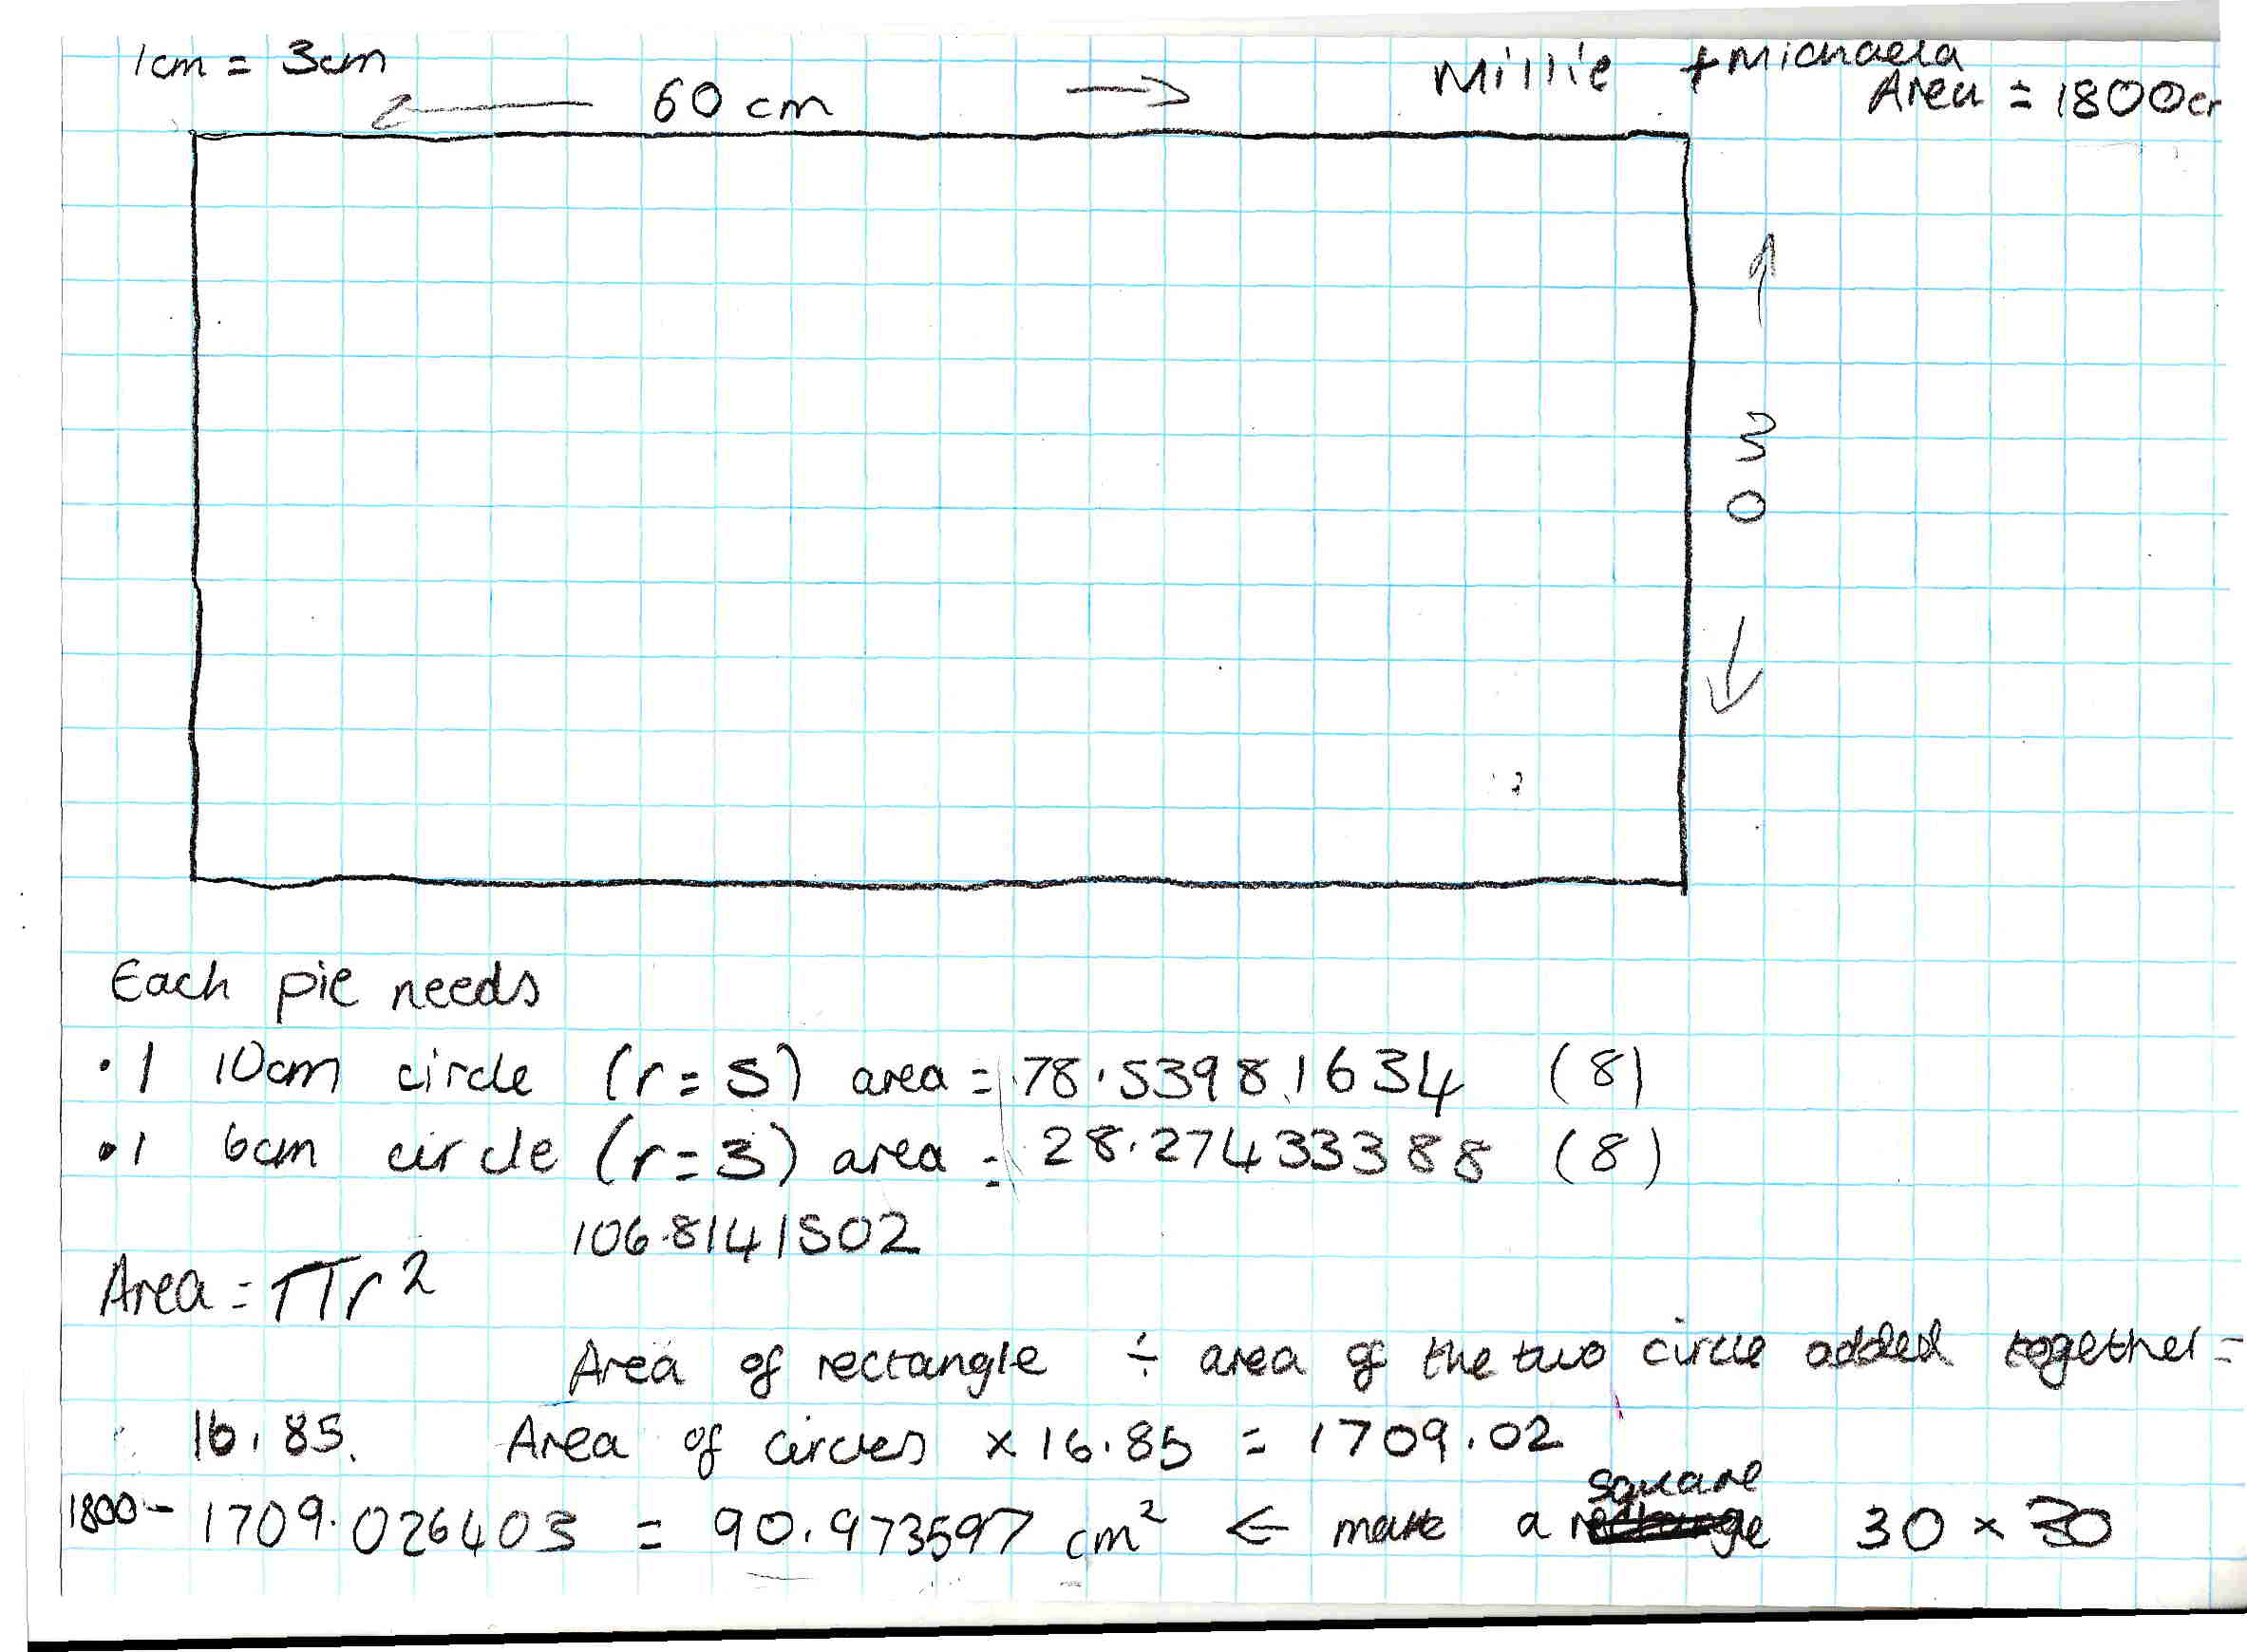 1cm = 3cm
Millie + Michaela
← 60 cm →
Area = 1800c
↑ 30 ↓
Each pie needs
• 1 10cm circle (r = 5) area = 78.53981634 (8)
• 1 6cm circle (r = 3) area = 28.27433388 (8)
106.8141502
Area = πr²
Area of rectangle ÷ area of the two circle added together =
16.85. Area of circles × 16.85 = 1709.02
1800 - 1709.026403 = 90.973597 cm² ← make a square 30 × 30